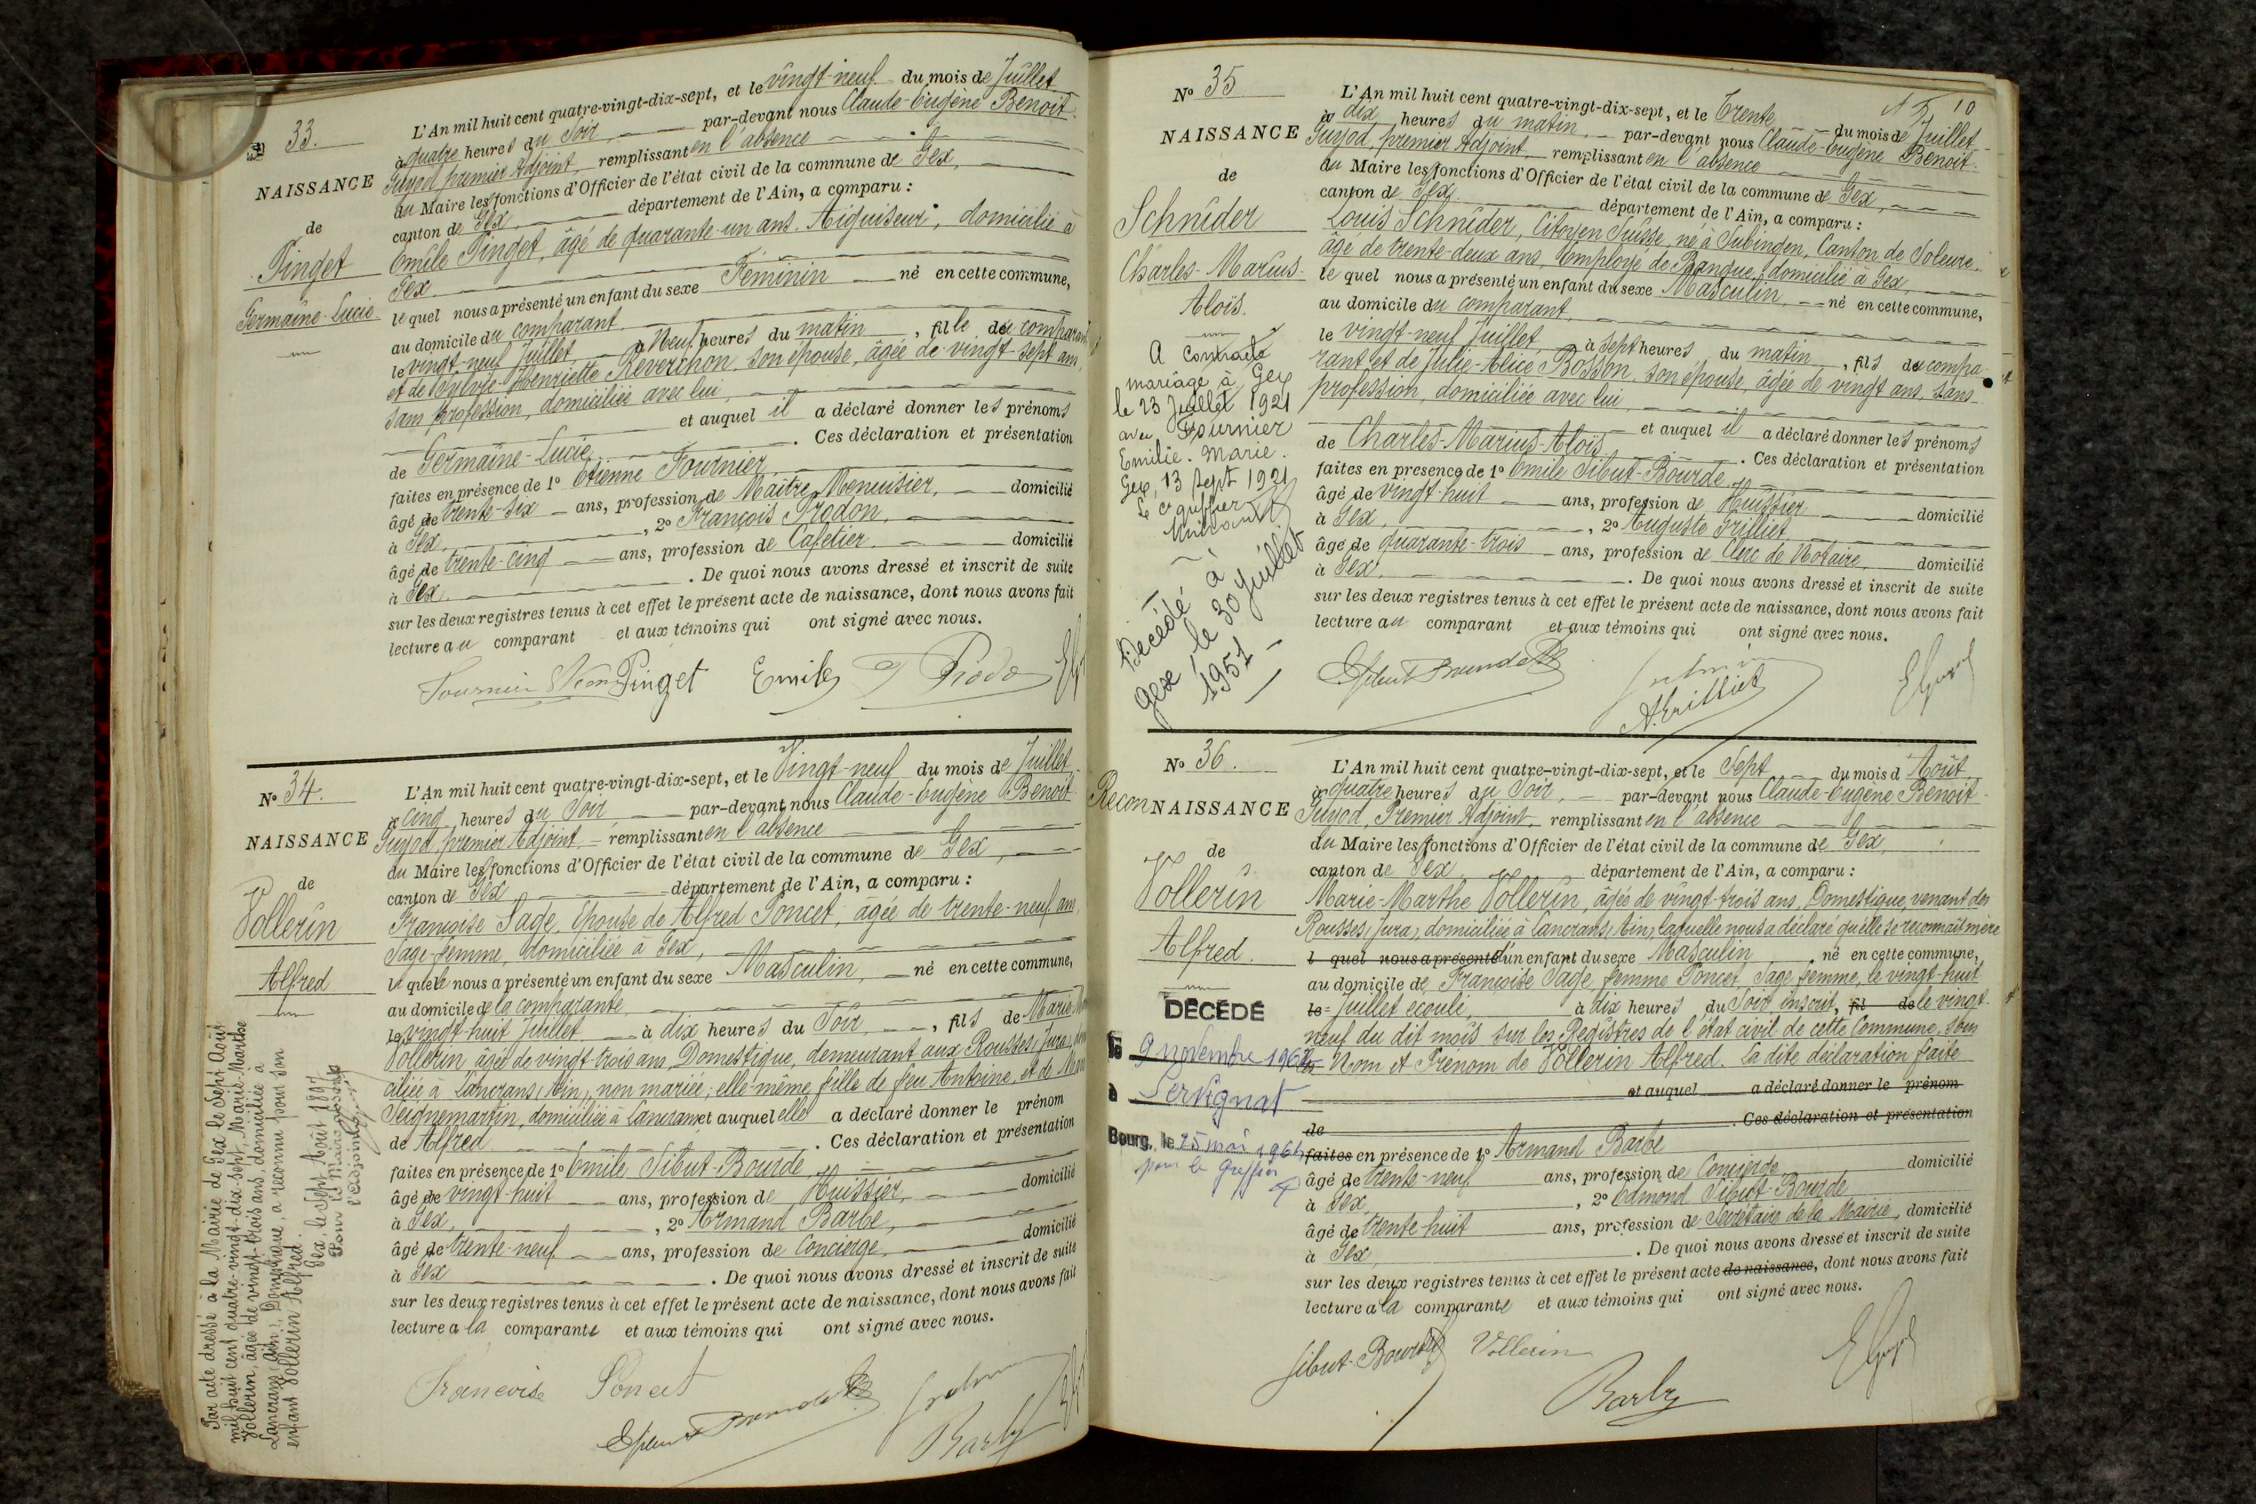 N° 33.
NAISSANCE
de
Pinget
Germaine-Lucie
L'An mil huit cent quatre-vingt-dix-sept, et le vingt-neuf du mois de Juillet
à quatre heures du Soir, par-devant nous Claude-Eugène Benoit
Guyod, premier Adjoint, remplissant en l'absence
du Maire les fonctions d'Officier de l'état civil de la commune de Gex,
canton de Gex, département de l'Ain, a comparu :
Emile Pinget, âgé de quarante-un ans, Aiguiseur, domicilié à
Gex
le quel nous a présenté un enfant du sexe Féminin né en cette commune,
au domicile du comparant.
le vingt-neuf Juillet à Neuf heures du matin, fille du comparant
et de Sylvie-Henriette Reverchon, son épouse, âgée de vingt-sept ans,
sans profession, domiciliée avec lui,
et auquel il a déclaré donner les prénoms
de Germaine-Lucie. Ces déclaration et présentation
faites en présence de 1° Etienne Fournier
âgé de trente-six ans, profession de Maitre Menuisier, domicilié
à Gex, 2° François Prodon,
âgé de trente-cinq ans, profession de Cafetier domicilié
à Gex. De quoi nous avons dressé et inscrit de suite
sur les deux registres tenus à cet effet le présent acte de naissance, dont nous avons fait
lecture au comparant et aux témoins qui ont signé avec nous.
Pinget Emile
N° 34.
NAISSANCE
de
Vollerin
Alfred
L'An mil huit cent quatre-vingt-dix-sept, et le Vingt-neuf du mois de Juillet
à cinq heures du Soir par-devant nous Claude-Eugène Benoit
Guyod, premier Adjoint, remplissant en l'absence
du Maire les fonctions d'Officier de l'état civil de la commune de Gex,
canton de Gex département de l'Ain, a comparu :
Françoise Sage, épouse de Alfred Poncet, âgée de trente-neuf ans,
Sage-femme, domiciliée à Gex,
laquelle nous a présenté un enfant du sexe Masculin, né en cette commune,
au domicile de la comparante
le vingt-huit Juillet à dix heures du Soir, fils de Marie
Vollerin âgée de vingt trois ans, Domestique, demeurant aux Rousses (Jura)
ciliée à Lancrans (Ain), non mariée; elle-même fille de feu Antoine, et de
Seignemartin, domiciliée à Lancrans et auquel elle a déclaré donner le prénom
de Alfred. Ces déclaration et présentation
faites en présence de 1° Emile Sibut-Bourde,
âgé de vingt-huit ans, profession de Huissier, domicilié
à Gex, 2° Armand Barbe,
âgé de trente-neuf ans, profession de Concierge domicilié
à Gex. De quoi nous avons dressé et inscrit de suite
sur les deux registres tenus à cet effet le présent acte de naissance, dont nous avons fait
lecture a la comparante et aux témoins qui ont signé avec nous.
Françoise Poncet
Par acte dressé à la Mairie de Gex le Sept Août
mil huit cent quatre-vingt-dix-sept, Marie-Marthe
Vollerin, âgée de vingt-trois ans, domiciliée à
Lancrans (Ain), Domestique, a reconnu pour son
enfant Vollerin Alfred.
Gex, le Sept Août 1897
Pour le Maire
l'adjoint
N° 35
NAISSANCE
de
Schnider
Charles-Marius-
Aloïs.
A contracté
mariage à Gex
le 23 Juillet 1921
avec Fournier
Emilie-Marie.
Gex, 13 Sept 1921
Le Greffier
Décédé à
Gex le 30 juillet
1951
L'An mil huit cent quatre-vingt-dix-sept, et le Trente du mois de Juillet
à dix heures du matin, par-devant nous Claude-Eugène Benoit
Guyod, premier Adjoint remplissant en l'absence
du Maire les fonctions d'Officier de l'état civil de la commune de Gex,
canton de Gex département de l'Ain, a comparu :
Louis Schnider, Citoyen Suisse, né à Subingen, Canton de Soleure,
âgé de trente-deux ans, Employé de Banque, domicilié à Gex
le quel nous a présenté un enfant du sexe Masculin né en cette commune,
au domicile du comparant,
le vingt-neuf Juillet, à sept heures du matin, fils du compa-
rant et de Julie-Alice Bosson, son épouse, âgée de vingt ans, sans
profession, domiciliée avec lui,
et auquel il a déclaré donner les prénoms
de Charles-Marius-Aloïs. Ces déclaration et présentation
faites en présence de 1° Emile Sibut-Bourde
âgé de vingt-huit ans, profession de Huissier domicilié
à Gex, 2° Auguste Grilliet
âgé de quarante-trois ans, profession de Clerc de Notaire, domicilié
à Gex. De quoi nous avons dressé et inscrit de suite
sur les deux registres tenus à cet effet le présent acte de naissance, dont nous avons fait
lecture au comparant et aux témoins qui ont signé avec nous.
A. Grilliet
N° 36.
Recon NAISSANCE
de
Vollerin
Alfred.
DÉCÉDÉ
le 9 novembre
à Servignat
Bourg, le 25 mai 1964
pour le Greffier
L'An mil huit cent quatre-vingt-dix-sept, et le Sept du mois d'Août
à quatre heures du Soir, par-devant nous Claude-Eugène Benoit
Guyod, Premier Adjoint remplissant en l'absence
du Maire les fonctions d'Officier de l'état civil de la commune de Gex,
canton de Gex département de l'Ain, a comparu :
Marie-Marthe Vollerin, âgée de vingt-trois ans, Domestique, venant des
Rousses (Jura), domiciliée à Lancrans (Ain), laquelle nous a déclaré qu'elle se reconnait mère
l quel nous a présenté d'un enfant du sexe Masculin né en cette commune,
au domicile de Françoise Sage, femme Poncet, Sage femme, le vingt-huit
le Juillet écoulé, à dix heures du Soir inscrit, fil de le vingt-
neuf du dit mois sur les Registres de l'état civil de cette Commune, sous
Nom et Prénom de Vollerin Alfred. La dite déclaration faite
et auquel a déclaré donner le prénom
de . Ces déclaration et présentation
faites en présence de 1° Armand Barbe
âgé de trente-neuf ans, profession de Concierge domicilié
à Gex, 2° Edmond Sibut-Bourde
âgé de trente huit ans, profession de Secrétaire de la Mairie, domicilié
à Gex, . De quoi nous avons dressé et inscrit de suite
sur les deux registres tenus à cet effet le présent acte de naissance, dont nous avons fait
lecture a la comparante et aux témoins qui ont signé avec nous.
Sibut-Bourde Vollerin
Barbe